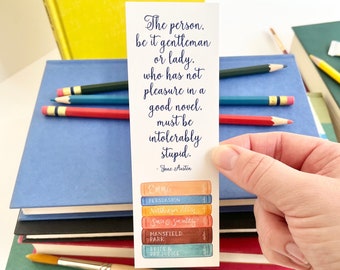 The person,
be it gentleman
or lady,
who has not
pleasure in a
good novel,
must be
intolerably
stupid.
- Jane Austen
Emma
PERSUASION
MANSFIELD
PARK
PRIDE &
PREJUDICE